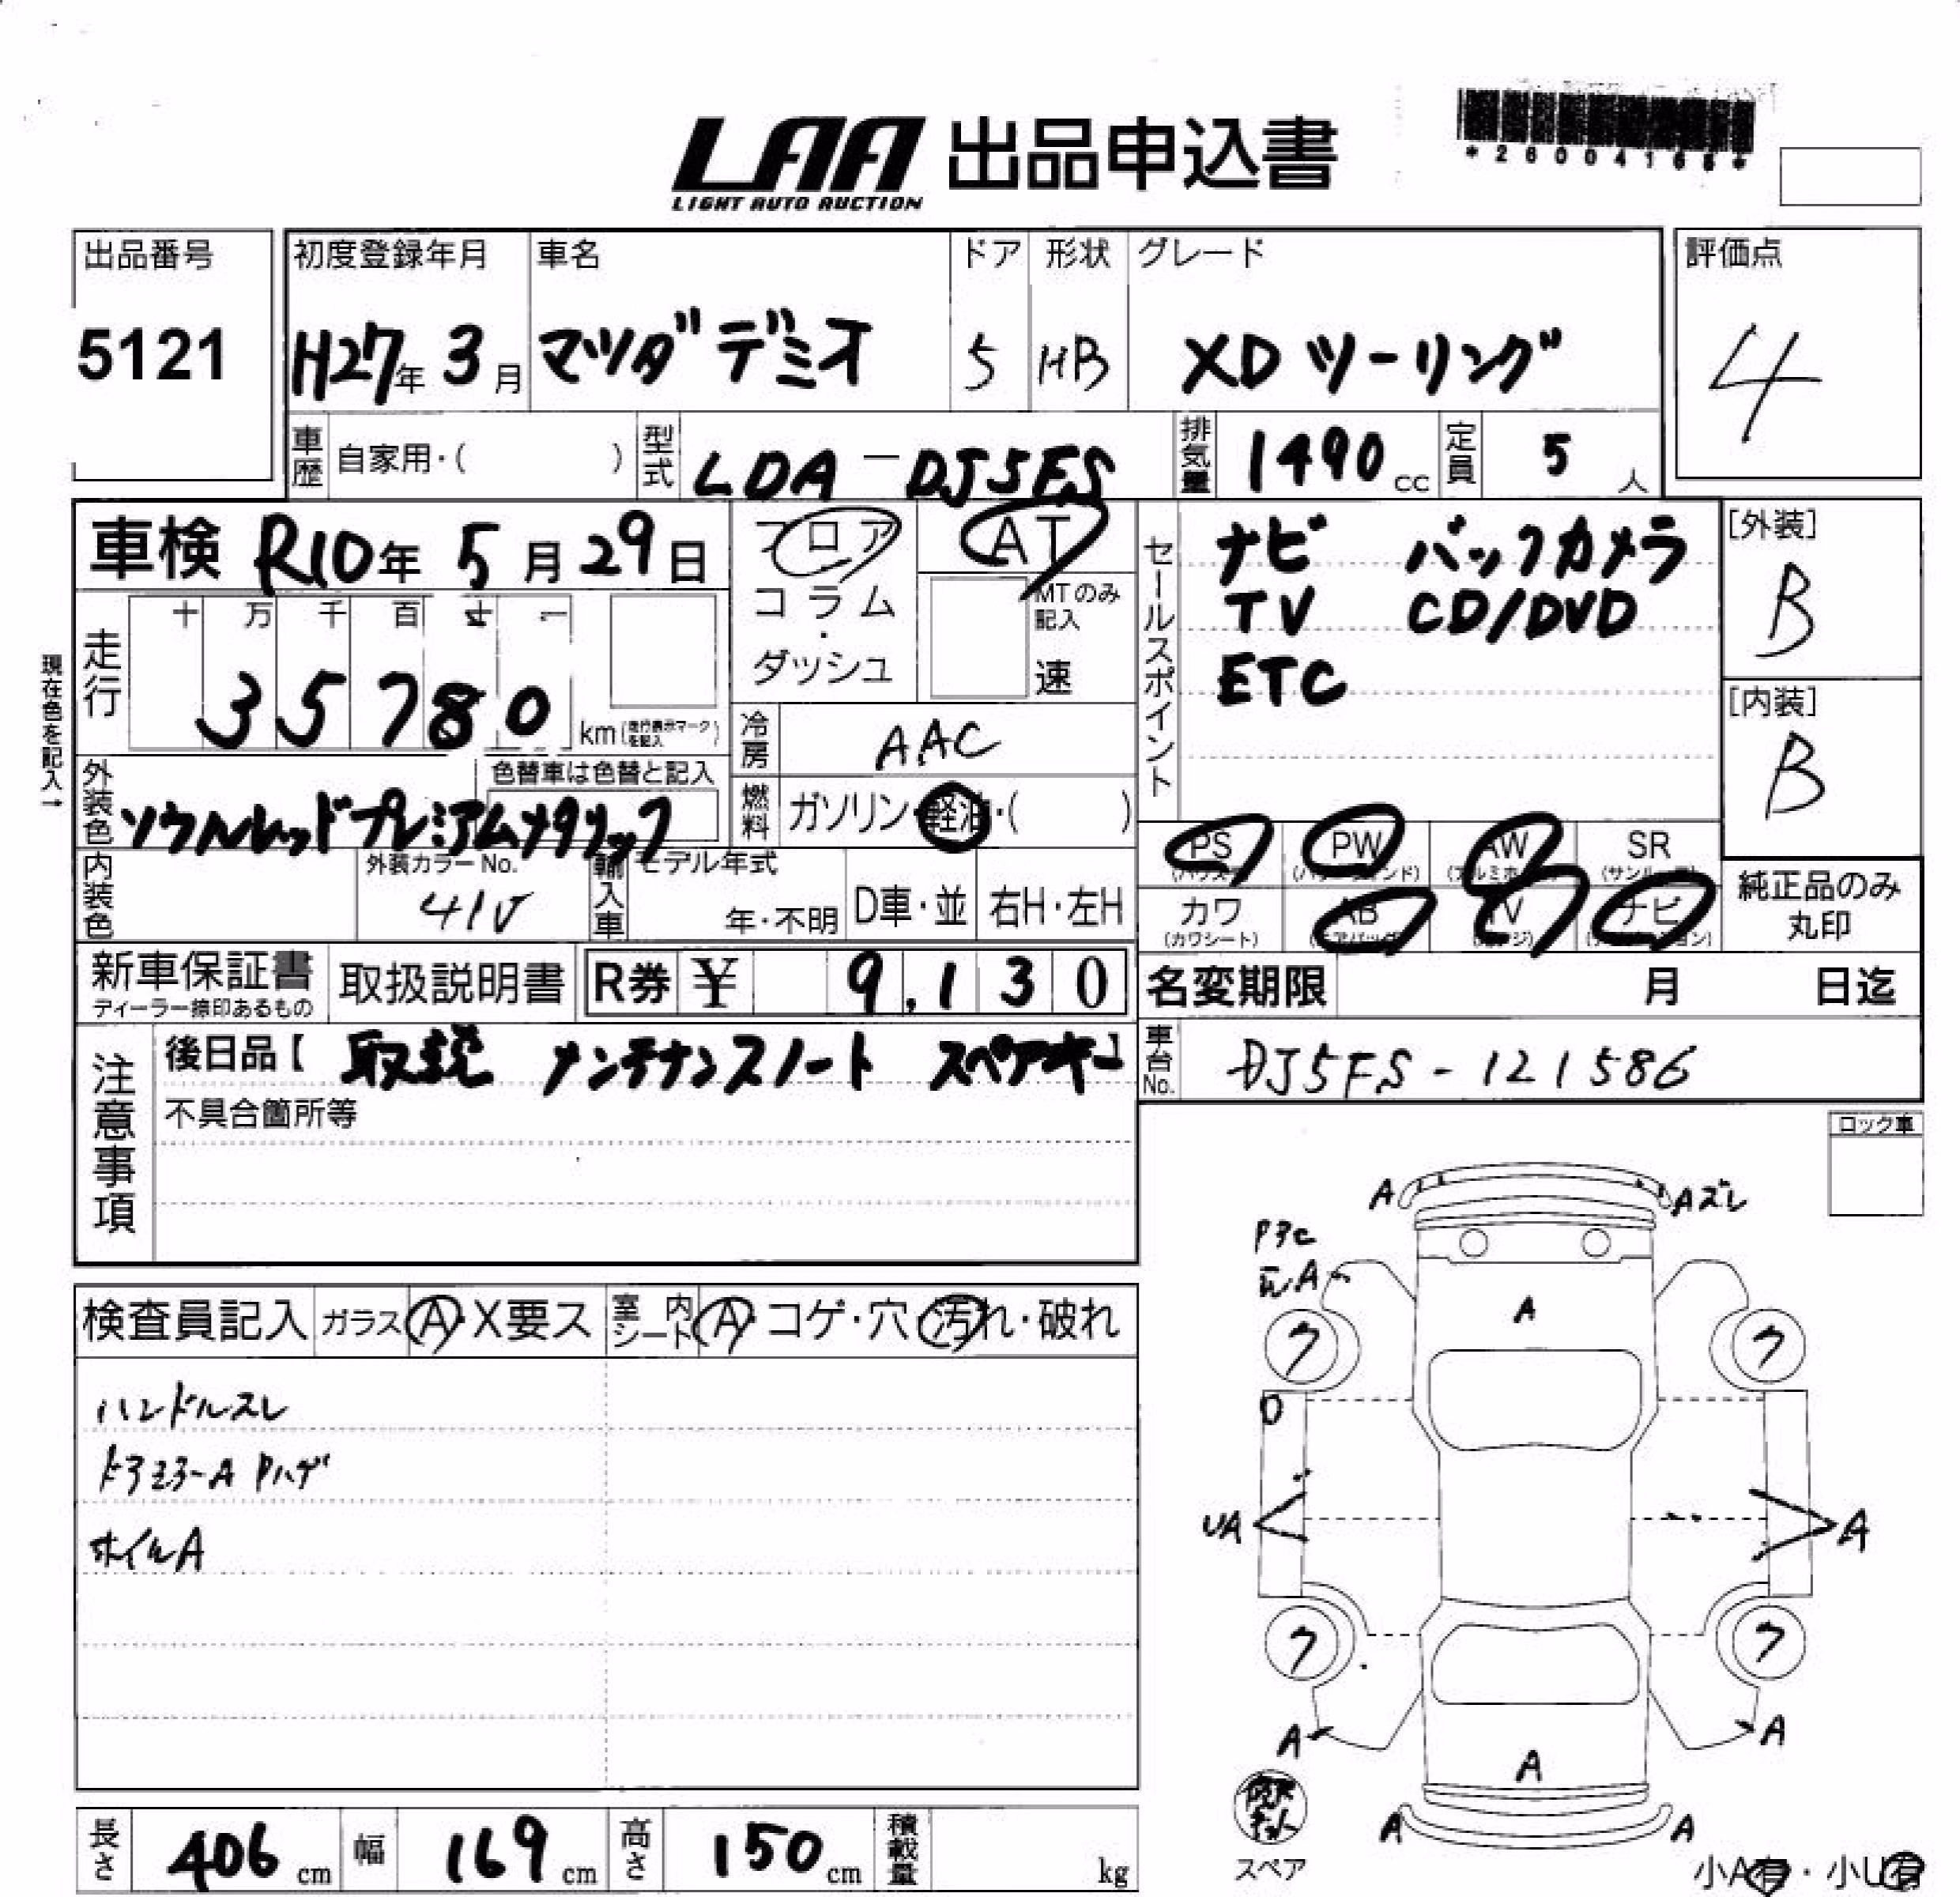 LAA 出品申込書
LIGHT AUTO AUCTION
*2600416
出品番号 初度登録年月 車名 ドア 形状 グレード 評価点
5121 H27年 3月 マツダ デミオ 5 HB XD ツーリング 4
車歴 自家用・( ) 型式 LDA-DJ5FS 排気量 1490 cc 定員 5 人
車検 R10年 5月 29日 フロア AT セールスポイント ナビ バックカメラ [外装]
コラム・ MTのみ記入 TV CD/DVD B
走行 十 万 千 百 十 一 ダッシュ 速 ETC [内装]
35780 km (走行表示マークを記入) 冷房 AAC B
現在色を記入→
外装色 ソウルレッドプレミアムメタリック 色替車は色替と記入 燃料 ガソリン・軽油・( )
PS PW AW SR
(サンルーフ)
内装色 外装カラーNo. 41V 輸入車 モデル年式 年・不明 D車・並 右H・左H
カワ AB TV ナビ 純正品のみ丸印
(カワシート) (エアバッグ)
新車保証書 取扱説明書 R券 ¥ 9,130 名変期限 月 日迄
ディーラー捺印あるもの
注意事項 後日品【 取説 メンテナンスノート スペアキー】 車台No. DJ5FS-121586
不具合箇所等
ロック車
A Aズレ
A
A
ワ ワ
検査員記入 ガラス A・X要ス 室内シート A・コゲ・穴・汚れ・破れ
ハンドルスレ
ドアミラーA Pハゲ
ホイルA
UA A
ワ ワ
A A
A
A A
スペア
小A有・小U有
長さ 406 cm 幅 169 cm 高さ 150 cm 積載量 kg